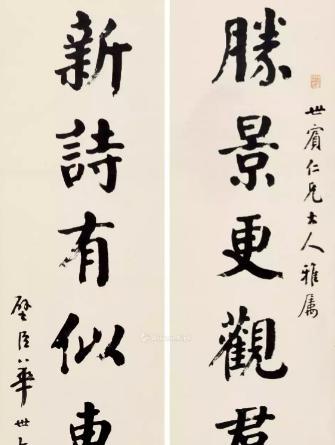 世賓仁兄大人雅属
勝景更觀君
新詩有似東
壁臣華世